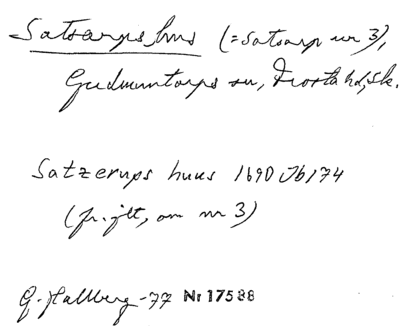 Satsarps hus (= Satsarp nr 3),
Gudmuntorps sn, Frosta hd, Sk.
Satzerups huus 1690 Jb 174
(fr. jtl, om nr 3)
G. Hallberg -77 Nr 17588